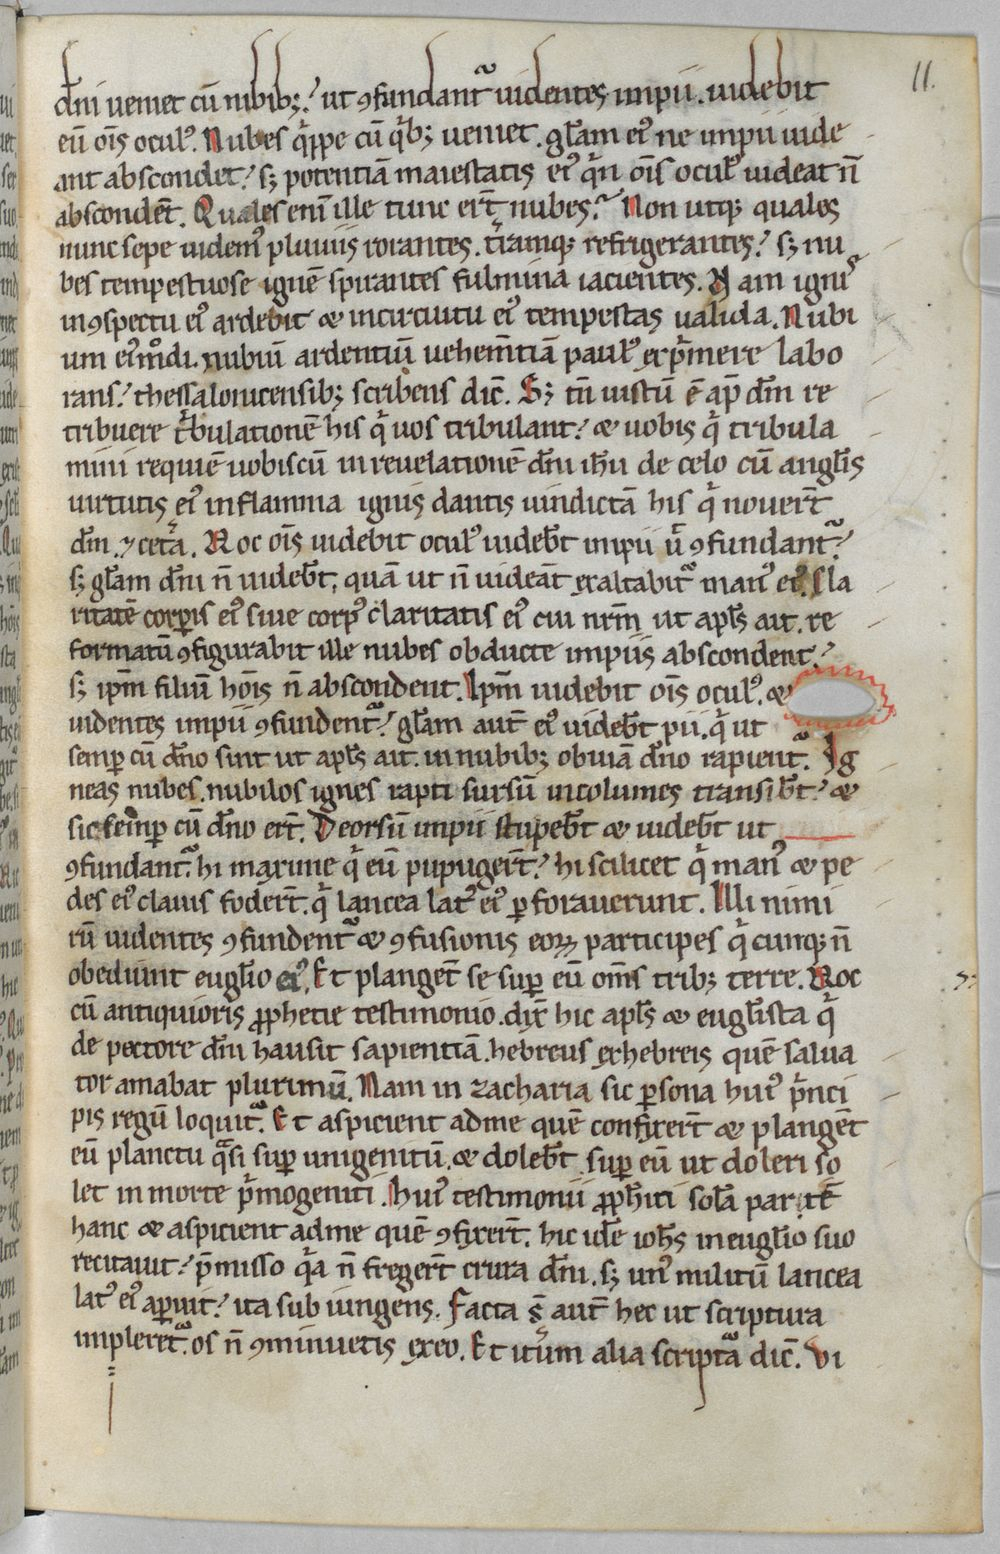 11.
dñi ueniet cũ nubibꝫ? ut ꝯfundant᷑ uidentes impii. uidebit
eũ oı̃s oculꝰ. Nubes qͥppe cũ qͥbꝫ ueniet. gl̃am eiꝰ ne impii uide
ant abscondet? sꝫ potentiã maiestatis eiꝰ qͥn oı̃s oculꝰ uideat ñ
abscondẽt. Quales eni̅ ille tunc er̃t nubes? Non utiqꝫ quales
nunc sepe uidemꝰ pluuiis rorantes. t̃ramqꝫ refrigerantes? sꝫ nu
bes tempestuose ignẽ spirantes fulmina iacientes. Nam ignis
in ꝯspectu eiꝰ ardebit & in circuitu eiꝰ tempestas ualida. Nubi
um eiꝰmodi. nubiũ ardentiũ uehem̃tiã paulꝰ exp̃mere labo
rans? thessalonicensibꝫ scribens dic̃. Sꝫ tñ iustũ ẽ ap̃ dm̃ re
tribuere tͥbulationẽ his qͥ uos tribulant? & uobis qͥ tribula
mini requiẽ uobiscũ in reuelationẽ dñi ihu de celo cũ angl̃is
uirtutis eiꝰ in flamma ignis dantis uindictã his qͥ nouer̃t
dm̃. ⁊ cet̃a. Hoc oı̃s uidebit oculꝰ uideb̃t impii ũ ꝯfundant᷑?
sꝫ gl̃am dñi ñ uideb̃t; quã ut ñ uideãt exaltabit᷑ manꝰ eiꝰ. Cla
ritatẽ corꝑis eiꝰ siue corpꝰ claritatis eiꝰ cui nr̃m ut apl̃s ait. re
formatũ ꝯfigurabit ille nubes obducte impiis abscondent?
sꝫ ip̃m filiũ hoı̃s ñ abscondent. Ip̃m uidebit oı̃s oculꝰ. &
uidentes impii ꝯfundent᷑? gl̃am aut̃ eiꝰ uideb̃t pii. qͥ ut
semꝑ cũ dño sint ut apl̃s ait. in nubibꝫ obuiã dño rapient᷑. Ig
neas nubes. nubilos ignes rapti sursũ incolumes transib̃t? &
sic semꝑ cũ dño er̃t. Deorsũ impii stupeb̃t & uideb̃t ut
ꝯfundant᷑. hi maxime qͥ eũ pupuger̃t? hi scilicet qͥ manꝰ & pe
des eiꝰ clauis foder̃t. qͥ lancea latꝰ eiꝰ ꝑforauerunt. Illi nimi
rũ uidentes ꝯfundent᷑ & ꝯfusionis eoꝝ participes qͥcunqꝫ ñ
obediunt eugl̃io eiꝰ. Et planget̃ se suꝑ eũ om̃s tribꝫ terre. Hoc
cũ antiquioris ꝓphetie testimonio. dix̃ hic apl̃s & eugl̃ista qͥ
de pectore dñi hausit sapientiã. hebreus ex hebreis quẽ salua
tor amabat plurimũ. Nam in zacharia sic ꝑsona huiꝰ pͥnci
pis regũ loquit᷑. Et aspicient ad me quẽ confixer̃t & planget̃
eũ planctu qͣsi suꝑ unigenitũ. & doleb̃t suꝑ eũ ut doleri so
let in morte pͥmogeniti. Huiꝰ testimonii ꝓph̃iti solã partẽ
hanc & aspicient ad me quẽ ꝯfixer̃t. hic idẽ ioh̃s in eugl̃io suo
recitauit? p̃misso qͥa ñ freger̃t crura dñi. sꝫ unꝰ militũ lancea
latꝰ eiꝰ aꝑuit? ita sub iungens. Facta s̃ aut̃ hec ut scriptura
impleret᷑. os ñ ꝯminuetis ex eo. Et it̃um alia script᷑a dic̃. Vi